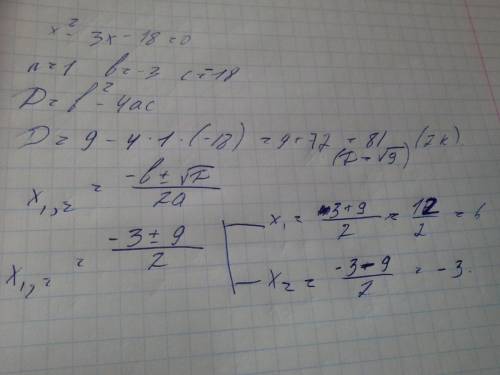 x² - 3x - 18 = 0
a = 1 b = -3 c = -18
D = b² - 4ac
D = 9 - 4 · 1 · (-18) = 9 + 72 = 81 (2 к)
(D = √9)
x₁,₂ = (-b ± √D) / 2a
x₁,₂ = (-3 ± 9) / 2
x₁ = (3 + 9) / 2 = 12 / 2 = 6
x₂ = (-3 - 9) / 2 = -3.